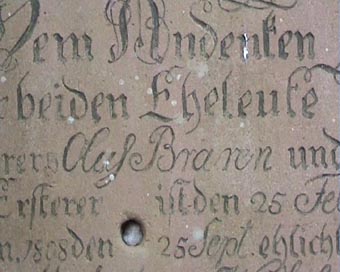 Dem Andenken
beiden Eheleute
rers Oluf Braren und
Ersterer ist den 25 Fe
n. 1808 den 25 Sept. ehlich